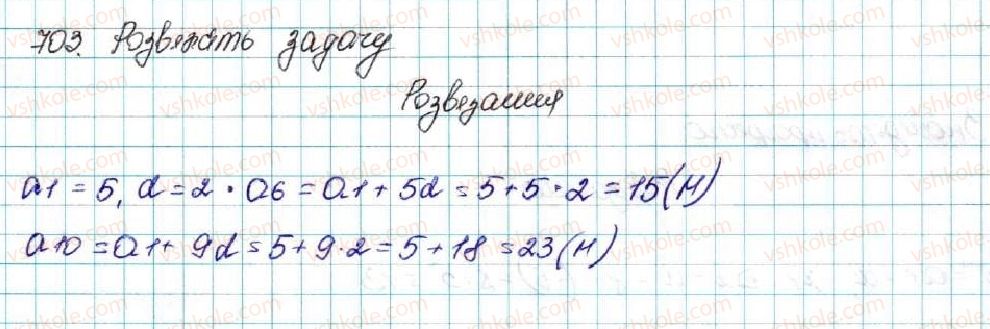 703. Розвяжіть задачу
Розвязання
a1 = 5, d = 2 · a6 = a1 + 5d = 5 + 5 · 2 = 15 (м)
a10 = a1 + 9d = 5 + 9 · 2 = 5 + 18 = 23 (м)
vshkole.com